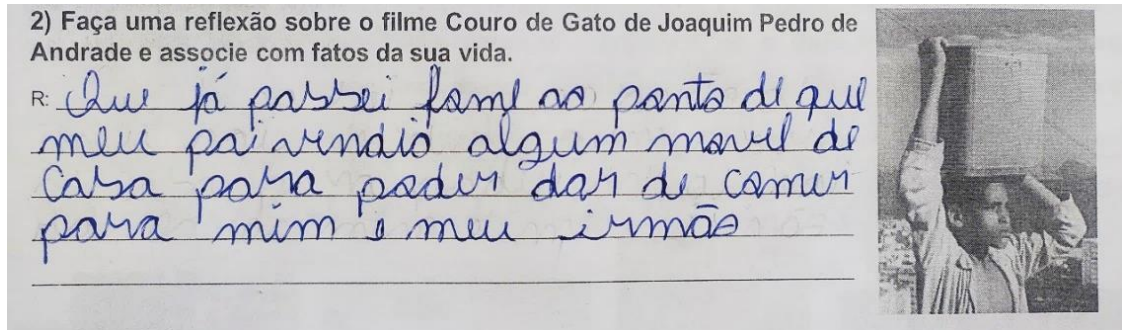 2) Faça uma reflexão sobre o filme Couro de Gato de Joaquim Pedro de
Andrade e associe com fatos da sua vida.
R: Que já passei fome ao ponto di que
meu pai vendio algum movel de
Casa para poder dar di comer
para mim e meu irmão